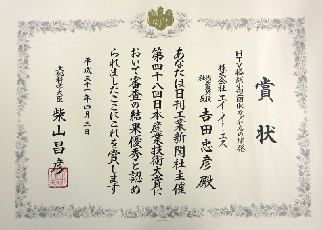 賞状
株式会社エイ・イーエス
吉田忠彦殿
あなたは日刊工業新聞社主催
第四十八回日本産業技術大賞に
おいて審査の結果優秀と認め
られましたここにこれを賞します
平成三十一年四月二日
文部科学大臣
柴山昌彦